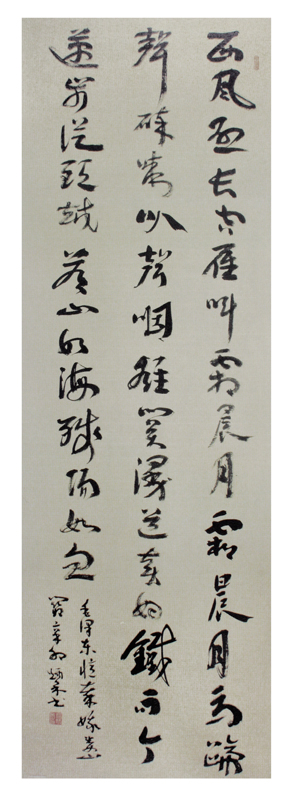 西風烈長空雁叫霜晨月霜晨月馬蹄
聲碎喇叭聲咽雄關漫道真如鐵而今
邁步從頭越蒼山如海殘陽如血
毛澤東憶秦娥婁山
關辛卯書